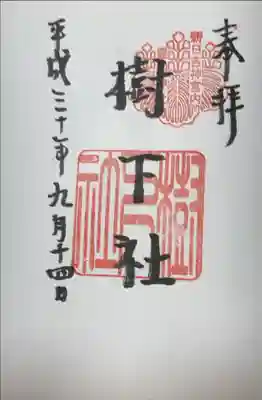 奉拝
樹下社
樹下社
平成三十年九月十四日